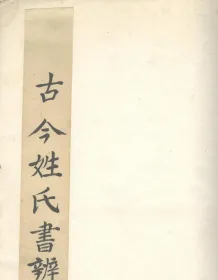 古今姓氏書辨